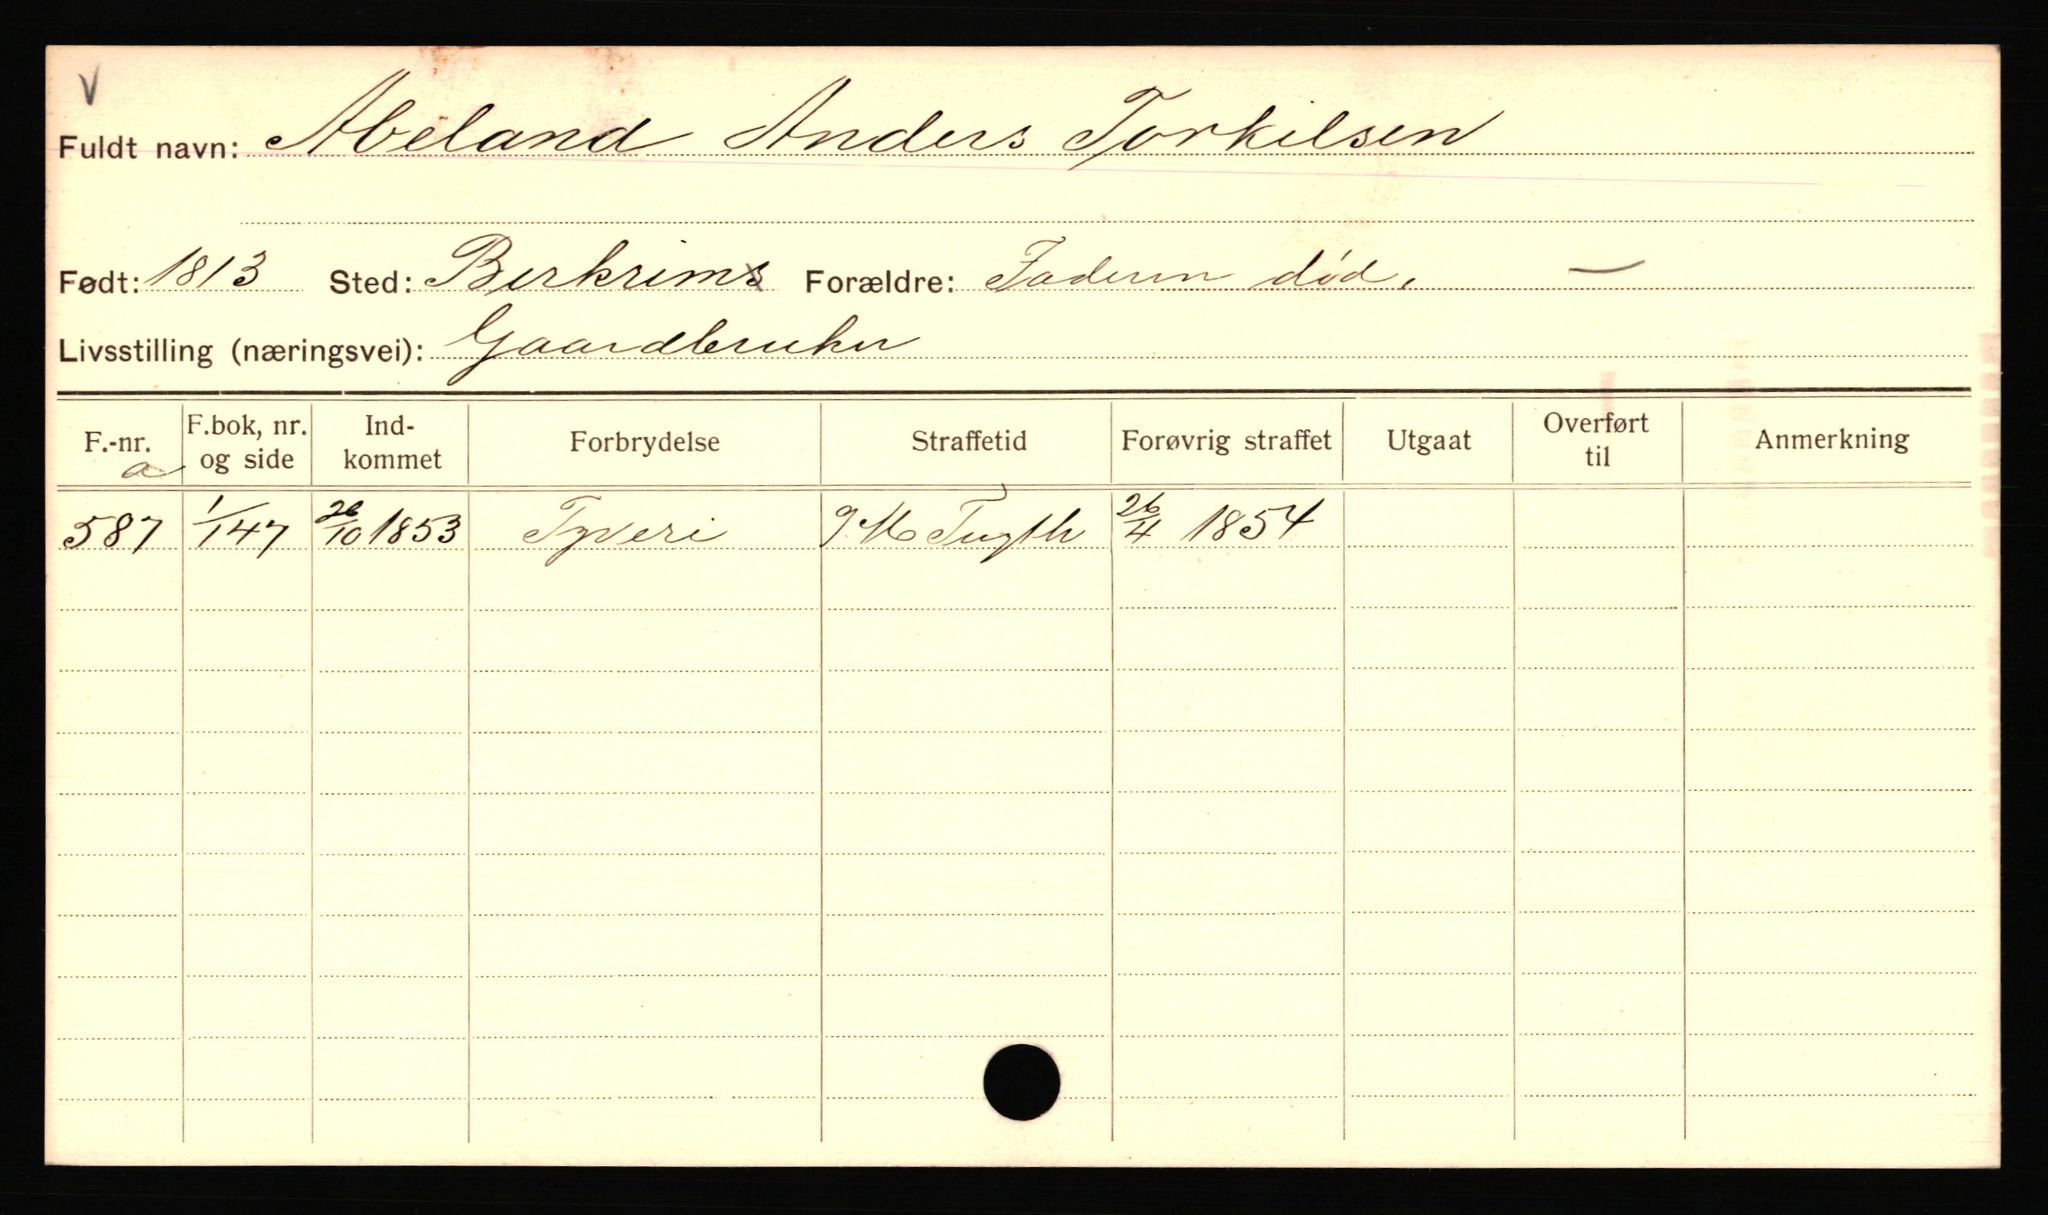 V
Fuldt navn: Abeland Anders Torkilsen
Født: 1813 Sted: Birkrims Forældre: Faderen død. —
Livsstilling (næringsvei): Gaardbruker
F.-nr. F.bok, nr. og side Ind-kommet Forbrydelse Straffetid Forøvrig straffet Utgaat Overført til Anmerkning
a
587 1/147 26/10 1853 Tyveri M Tugth 26/4 1854